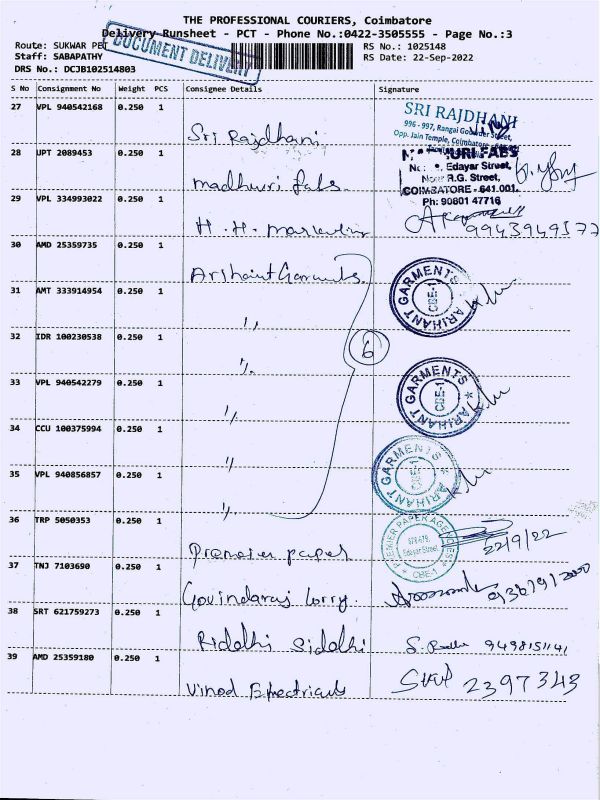 THE PROFESSIONAL COURIERS, Coimbatore
Delivery Runsheet - PCT - Phone No.:0422-3505555 - Page No.:3
DOCUMENT DELIVERY
Route: SUKWAR PET
RS No.: 1025148
Staff: SABAPATHY
RS Date: 22-Sep-2022
DRS No.: DCJB102514803
S No Consignment No Weight PCS Consignee Details Signature
27 VPL 940542168 0.250 1
Sri Rajdhani
SRI RAJDHANI
996 - 997, Rangai Gowder Street,
Opp. Jain Temple, Coimbatore
28 UPT 2089453 0.250 1
madhuri fabs
FABS
Edayar Street,
R.G. Street,
COIMBATORE - 641 001.
Ph: 90801 47716
29 VPL 334993022 0.250 1
H. H. marketing
9943949577
30 AMD 25359735 0.250 1
Arihant Garments
31 AMT 333914954 0.250 1
"
ARIHANT GARMENTS CBE-1
32 IDR 100230538 0.250 1
"
6
33 VPL 940542279 0.250 1
"
ARIHANT GARMENTS CBE-1
34 CCU 100375994 0.250 1
"
35 VPL 940856857 0.250 1
"
ARIHANT GARMENTS CBE-1
36 TRP 5050353 0.250 1
Premier paper
PREMIER PAPER AGENCIES
Edayar Street
CBE-1
22/9/22
37 TNJ 7103690 0.250 1
Govindaraj lorry
38 SRT 621759273 0.250 1
Riddhi Siddhi
S. 9498151141
39 AMD 25359180 0.250 1
Vinod Electricals
2397343